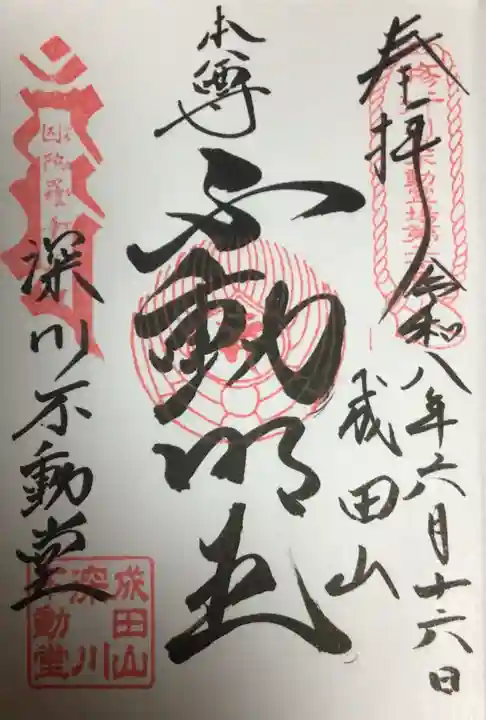 奉拝
令和八年六月十六日
本尊
不動明王
成田山
深川不動堂
成田山
深川
不動堂